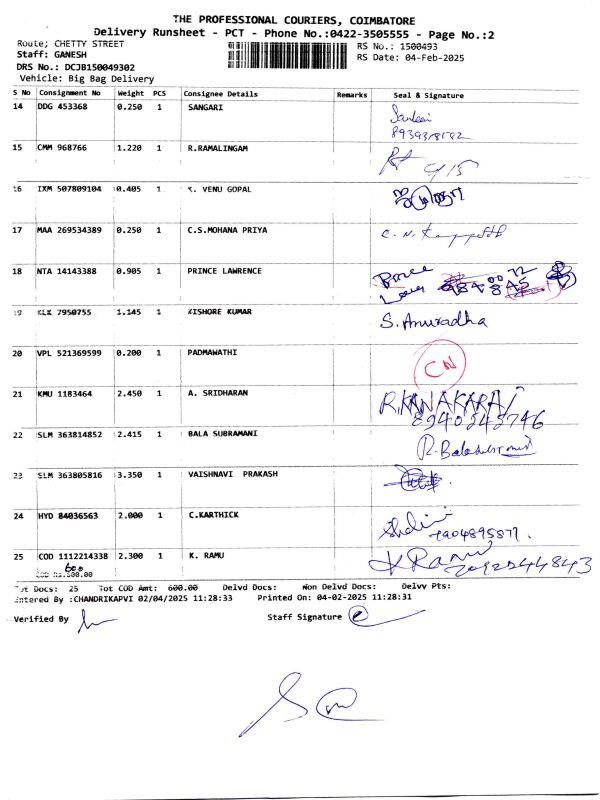 THE PROFESSIONAL COURIERS, COIMBATORE
Delivery Runsheet - PCT - Phone No.:0422-3505555 - Page No.:2
Route; CHETTY STREET
RS No.: 1500493
Staff: GANESH
RS Date: 04-Feb-2025
DRS No.: DCJB150049302
Vehicle: Big Bag Delivery
S No Consignment No Weight PCS Consignee Details Remarks Seal & Signature
14 DDG 453368 0.250 1 SANGARI
15 CMM 968766 1.220 1 R.RAMALINGAM
16 IXM 507809104 0.405 1 K. VENU GOPAL
17 MAA 269534389 0.250 1 C.S.MOHANA PRIYA
18 NTA 14143388 0.905 1 PRINCE LAWRENCE
19 KLK 7950755 1.145 1 KISHORE KUMAR S. Anuradha
20 VPL 521369599 0.200 1 PADMAWATHI CN
21 KMU 1183464 2.450 1 A. SRIDHARAN R.KANAKARAJ
8940343746
22 SLM 363814852 2.415 1 BALA SUBRAMANI
23 SLM 363805816 3.350 1 VAISHNAVI PRAKASH
24 HYD 84036563 2.000 1 C.KARTHICK
25 COD 1112214338 2.300 1 K. RAMU K Ramu
600
COD Rs.600.00
Tot Docs: 25 Tot COD Amt: 600.00 Delvd Docs: Non Delvd Docs: Delvy Pts:
Entered By :CHANDRIKAPVI 02/04/2025 11:28:33 Printed On: 04-02-2025 11:28:31
Verified By
Staff Signature